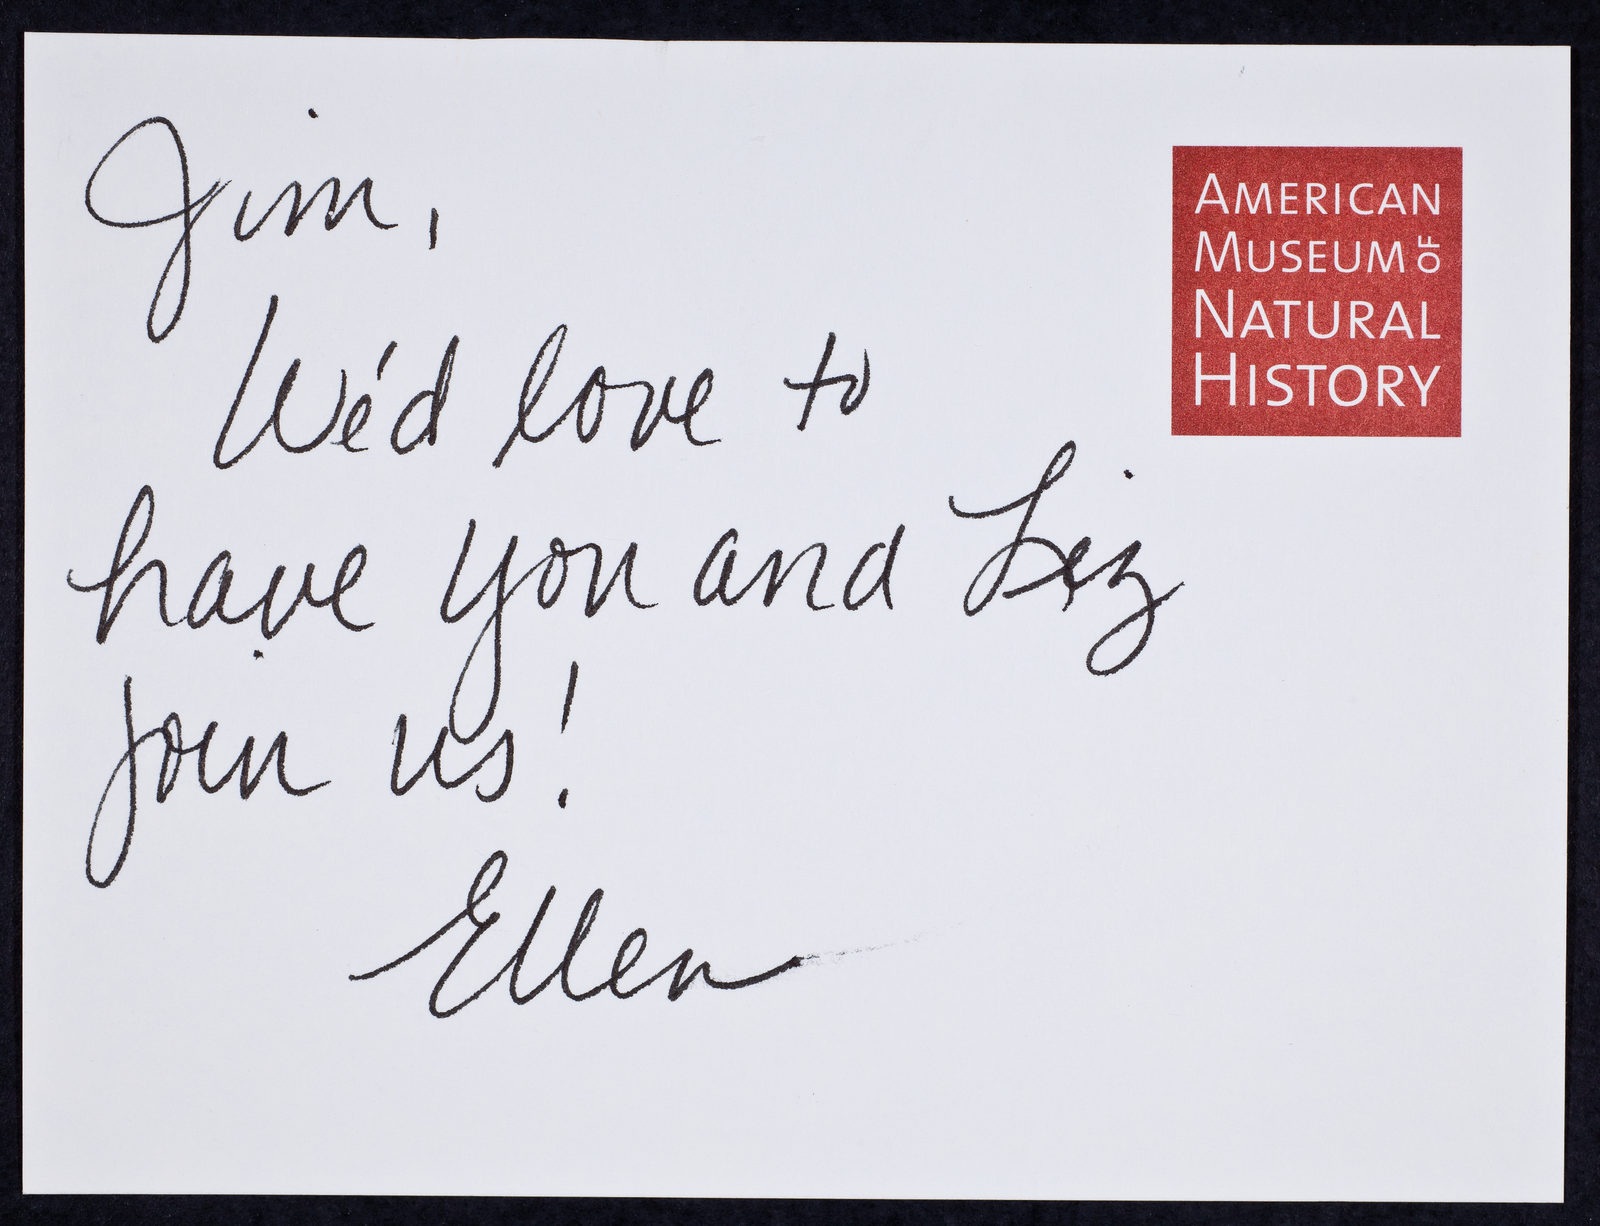 Jim,
We'd love to
have you and Liz
join us!
Ellen
AMERICAN
MUSEUM OF
NATURAL
HISTORY